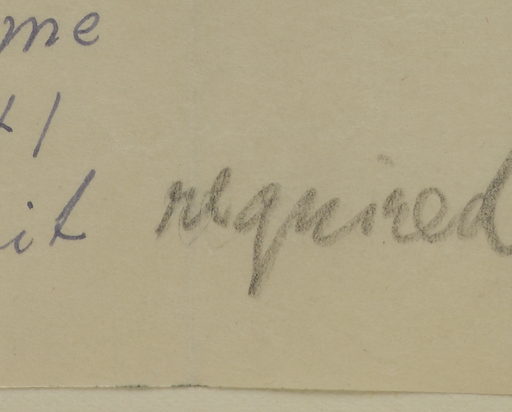 me
t/
it required